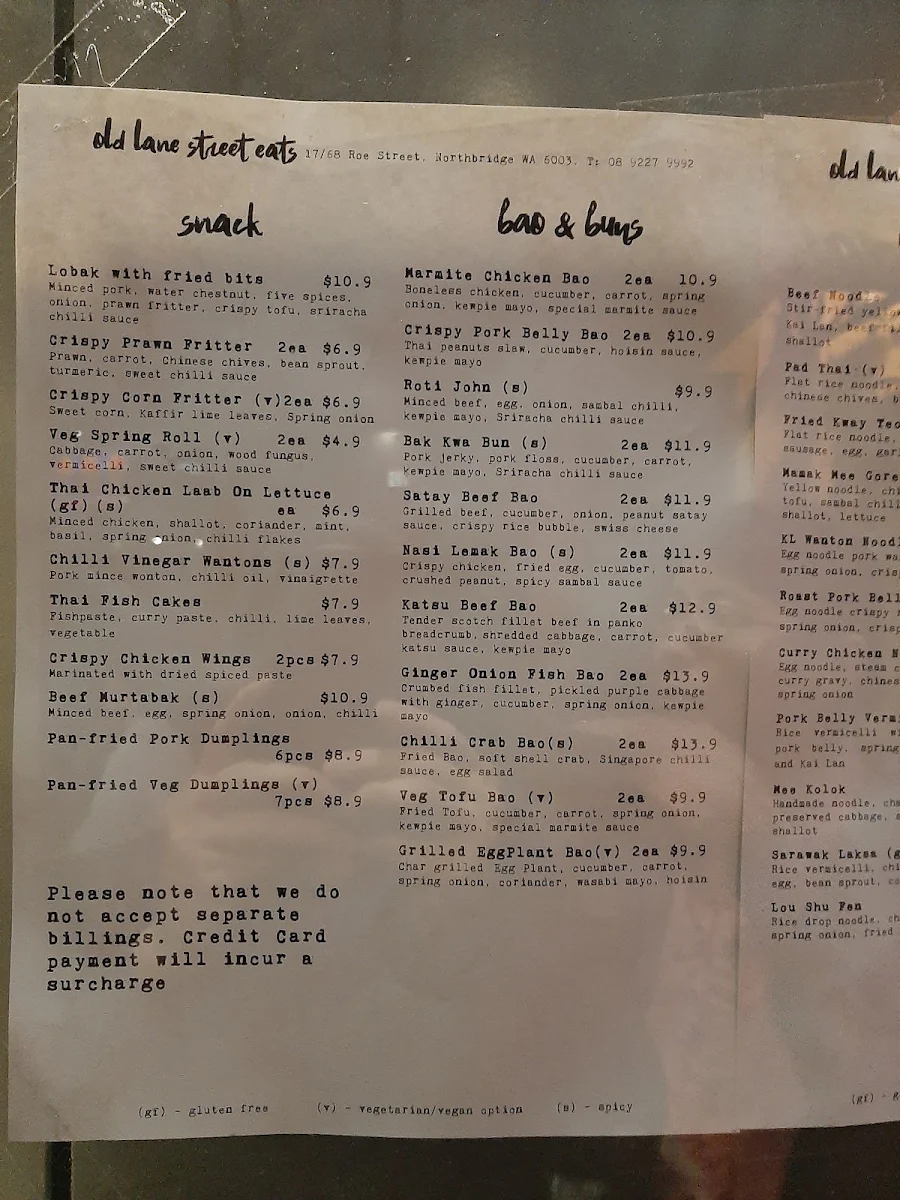 old lane street eats 17/68 Roe Street, Northbridge WA 6003. T: 08 9227 9992
snack
Lobak with fried bits $10.9
Minced pork, water chestnut, five spices,
onion, prawn fritter, crispy tofu, sriracha
chilli sauce
Crispy Prawn Fritter 2ea $6.9
Prawn, carrot, Chinese chives, bean sprout,
turmeric, sweet chilli sauce
Crispy Corn Fritter (v)2ea $6.9
Sweet corn, Kaffir lime leaves, Spring onion
Veg Spring Roll (v) 2ea $4.9
Cabbage, carrot, onion, wood fungus,
vermicelli, sweet chilli sauce
Thai Chicken Laab On Lettuce
(gf)(s) ea $6.9
Minced chicken, shallot, coriander, mint,
basil, spring onion, chilli flakes
Chilli Vinegar Wantons (s) $7.9
Pork mince wonton, chilli oil, vinaigrette
Thai Fish Cakes $7.9
Fishpaste, curry paste, chilli, lime leaves,
vegetable
Crispy Chicken Wings 2pcs $7.9
Marinated with dried spiced paste
Beef Murtabak (s) $10.9
Minced beef, egg, spring onion, onion, chilli
Pan-fried Pork Dumplings
6pcs $8.9
Pan-fried Veg Dumplings (v)
7pcs $8.9
Please note that we do
not accept separate
billings. Credit Card
payment will incur a
surcharge
bao & buns
Marmite Chicken Bao 2ea 10.9
Boneless chicken, cucumber, carrot, spring
onion, kewpie mayo, special marmite sauce
Crispy Pork Belly Bao 2ea $10.9
Thai peanuts slaw, cucumber, hoisin sauce,
kewpie mayo
Roti John (s) $9.9
Minced beef, egg, onion, sambal chilli,
kewpie mayo, Sriracha chilli sauce
Bak Kwa Bun (s) 2ea $11.9
Pork jerky, pork floss, cucumber, carrot,
kewpie mayo, Sriracha chilli sauce
Satay Beef Bao 2ea $11.9
Grilled beef, cucumber, onion, peanut satay
sauce, crispy rice bubble, swiss cheese
Nasi Lemak Bao (s) 2ea $11.9
Crispy chicken, fried egg, cucumber, tomato,
crushed peanut, spicy sambal sauce
Katsu Beef Bao 2ea $12.9
Tender scotch fillet beef in panko
breadcrumb, shredded cabbage, carrot, cucumber
katsu sauce, kewpie mayo
Ginger Onion Fish Bao 2ea $13.9
Crumbed fish fillet, pickled purple cabbage
with ginger, cucumber, spring onion, kewpie
mayo
Chilli Crab Bao(s) 2ea $13.9
Fried Bao, soft shell crab, Singapore chilli
sauce, egg salad
Veg Tofu Bao (v) 2ea $9.9
Fried Tofu, cucumber, carrot, spring onion,
kewpie mayo, special marmite sauce
Grilled EggPlant Bao(v) 2ea $9.9
Char grilled Egg Plant, cucumber, carrot,
spring onion, coriander, wasabi mayo, hoisin
(gf) - gluten free (v) - vegetarian/vegan option (s) - spicy
old lan
Beef
Stir-fried
Kai Lan,
shallot
Pad Thai (v)
Flat rice noodle,
chinese chives,
Fried Kway Teo
Flat rice noodle,
sausage, egg,
Mamak Mee Gore
Yellow noodle,
tofu, sambal
shallot, lettuce
KL Wanton
Egg noodle pork
spring onion,
Roast Pork Bell
Egg noodle crispy
spring onion,
Curry Chicken
Egg noodle, steam
curry gravy,
spring onion
Pork Belly Verm
Rice vermicelli
pork belly, spring
and Kai Lan
Mee Kolok
Handmade noodle,
preserved cabbage,
shallot
Sarawak Laksa
Rice vermicelli,
egg, bean sprout,
Lou Shu Fen
Rice drop noodle,
spring onion, fried
(gf) -